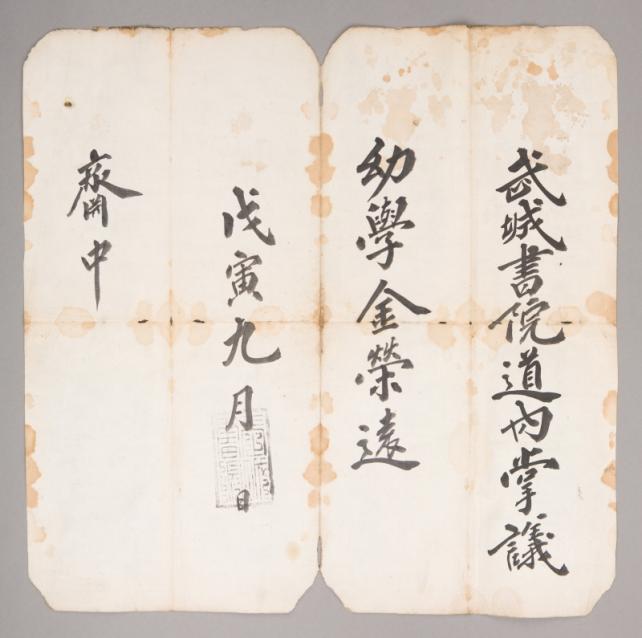 武城書院道內掌議
幼學金榮遠
戊寅九月日
齋中